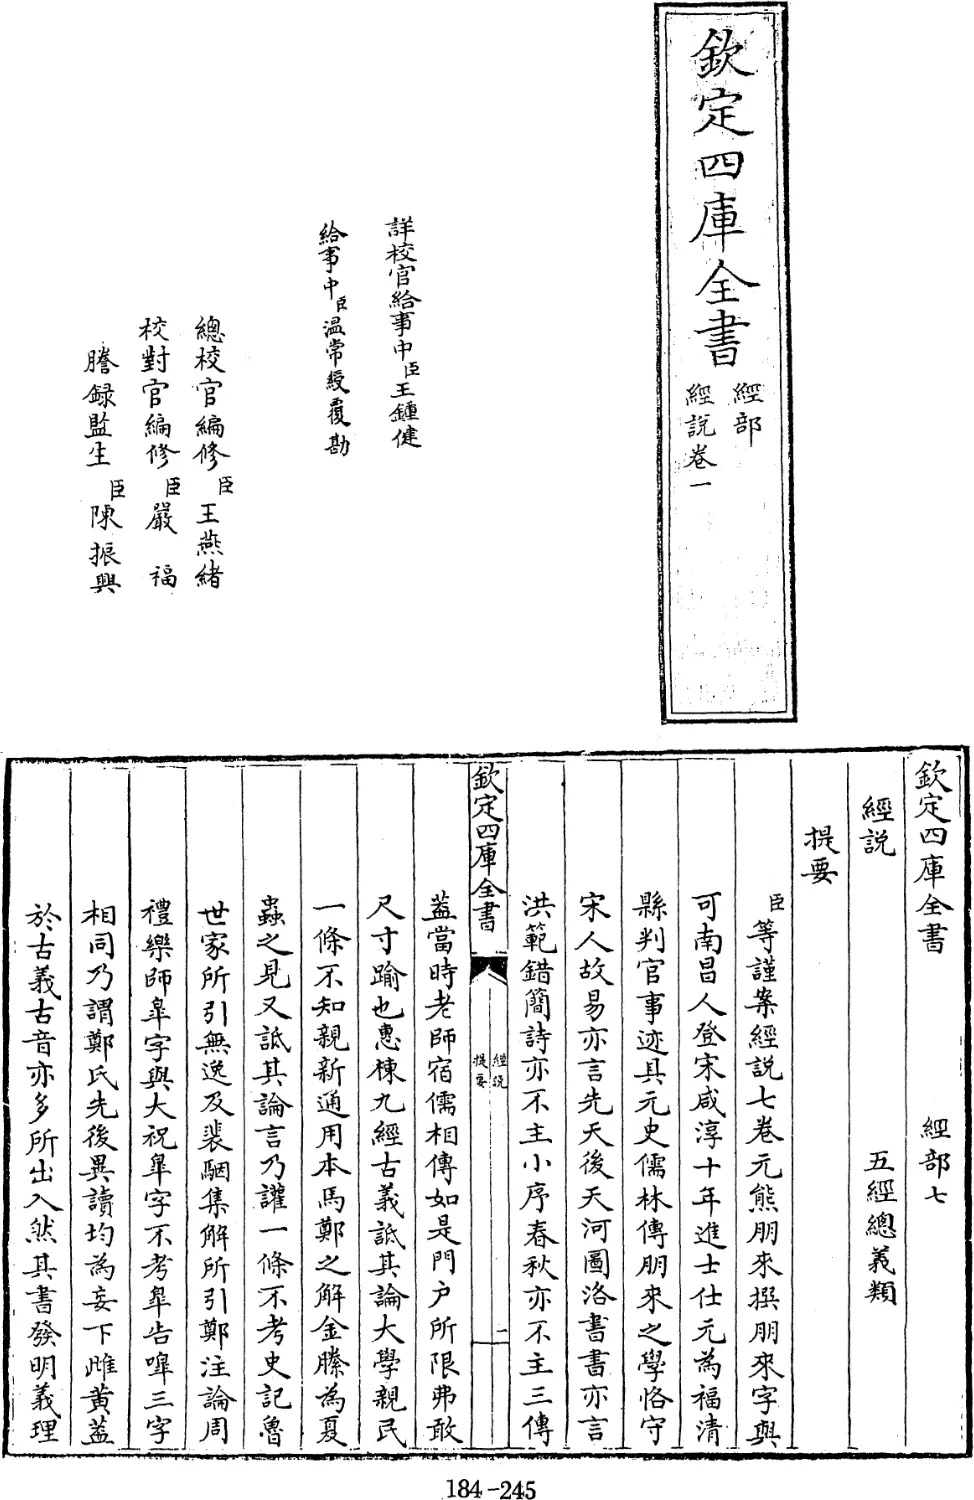 欽定四庫全書
經部
經說卷一
詳校官給事中臣王鍾健
給事中臣温常綬覆勘
總校官編修臣王燕緒
校對官編修臣嚴福
謄録監生臣陳振興
欽定四庫全書 經部七
經說 五經總義類
提要
臣等謹案經說七卷元熊朋來撰朋來字與
可南昌人登宋咸淳十年進士仕元為福清
縣判官事迹具元史儒林傳朋來之學恪守
宋人故易亦言先天後天河圖洛書書亦言
洪範錯簡詩亦不主小序春秋亦不主三傳
欽定四庫全書
經說
提要
一
蓋當時老師宿儒相傳如是門户所限弗敢
尺寸踰也惠棟九經古義詆其論大學親民
一條不知親新通用本馬鄭之解金縢為夏
蟲之見又詆其論言乃讙一條不考史記魯
世家所引無逸及裴駰集解所引鄭注論周
禮樂師臯字與大祝臯字不考臯告嘷三字
相同乃謂鄭氏先後異讀均為妄下雌黄蓋
於古義古音亦多所出入然其書發明義理
184-245